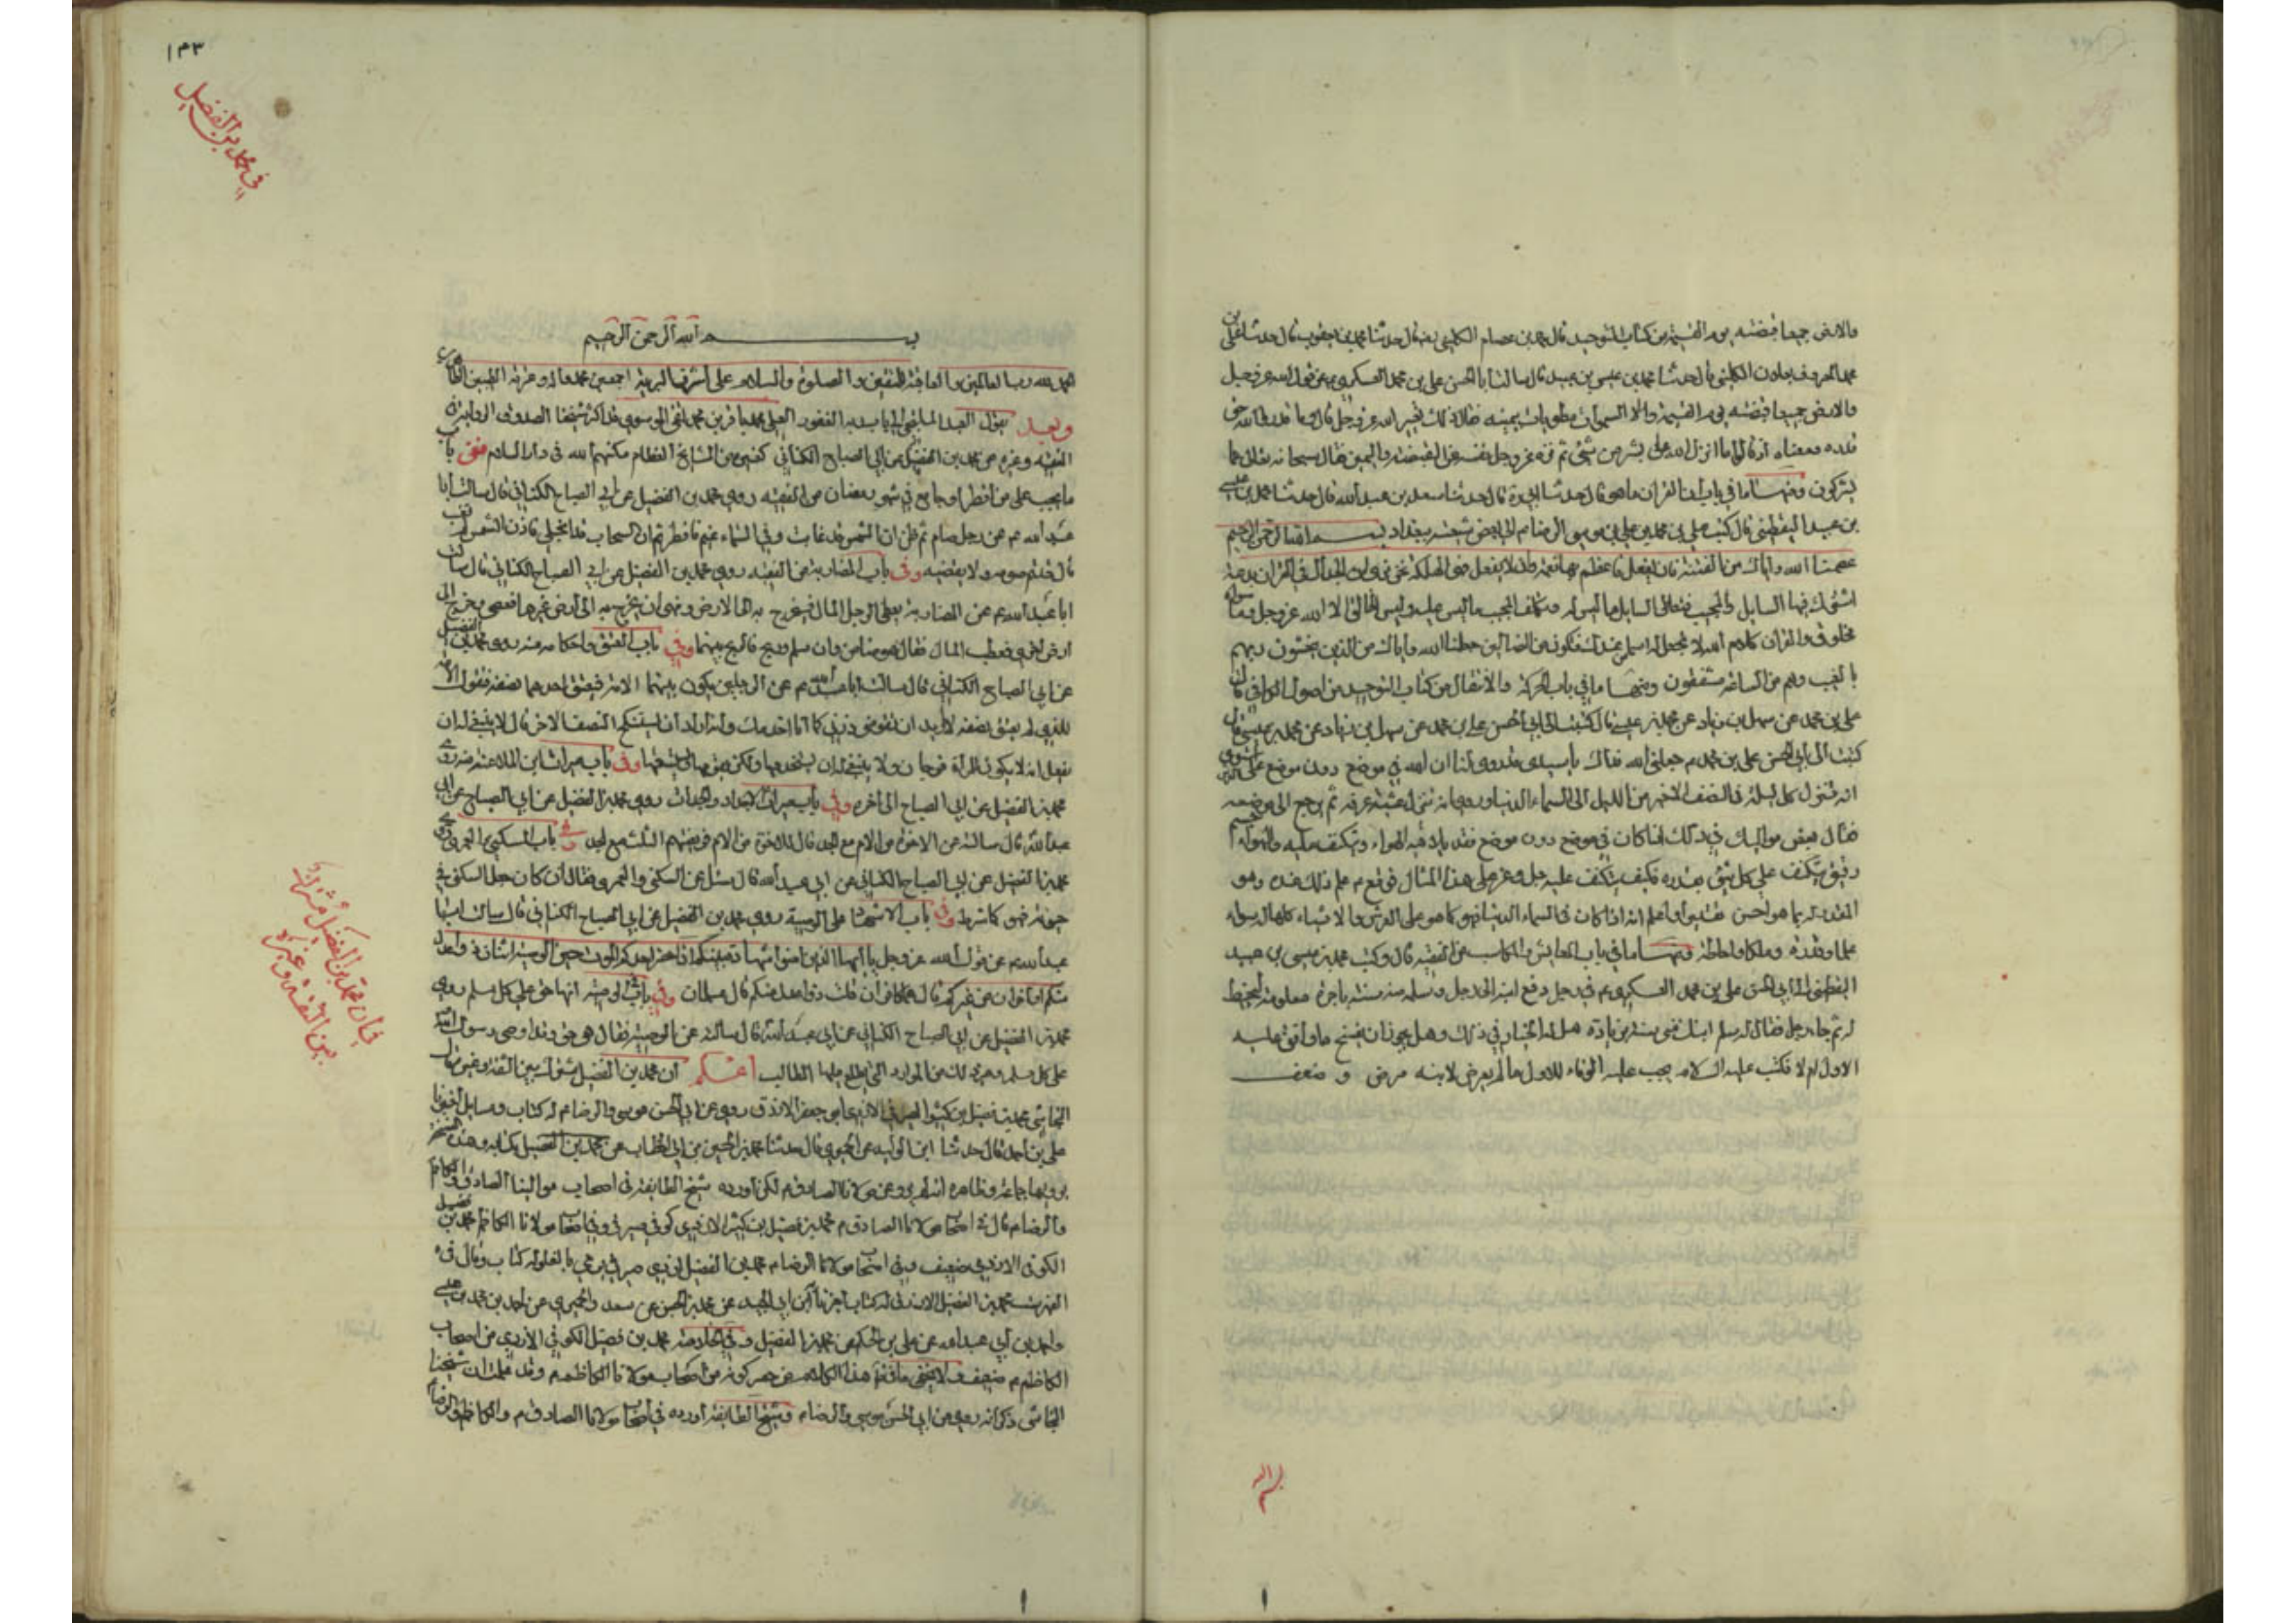 والارض جميعا قبضته يوم القيمة من كتاب التوحيد قال محمد بن عصام الكليني قال حدثنا محمد بن يعقوب قال حدثنا علي بن
محمد المعروف بعلان الكليني قال حدثنا محمد بن عيسى بن عبيد قال سالت ابا الحسن علي بن محمد العسكري ع عن قول الله عز وجل
والارض جميعا قبضته يوم القيمة والسموات مطويات بيمينه فقال ذلك تعيير الله عز وجل قال وما قدروا الله حق
قدره ومعناه اذ قالوا ما انزل الله على بشر من شئ ثم نزه عز وجل نفسه عن القبضة واليمين فقال سبحانه تعالى عما
يشركون ومنها ما في باب القران ما هو قال حدثنا ابي ره قال حدثنا سعد بن عبد الله قال حدثنا محمد بن عيسى
بن عبيد اليقطيني قال كتب علي بن محمد بن علي بن موسى الرضا ع الى بعض شيعته ببغداد بسم الله الرحمن الرحيم
عصمنا الله واياك من الفتنة فان يفعل فاعظم بها نعمة والا يفعل فهي الهلكة نحن نرى ان الجدال في القران بدعة
اشترك فيها السايل والمجيب فتعاطى السايل ما ليس له وتكلف المجيب ما ليس عليه وليس الخالق الا الله عز وجل وما سواه
مخلوق والقران كلام الله لا تجعل له اسما من عندك فتكون من الضالين جعلنا الله واياك من الذين يخشون ربهم
بالغيب وهم من الساعة مشفقون ومنها ما في باب الحركة والانتقال من كتاب التوحيد من اصول الوافي قال
علي بن محمد عن سهل بن زياد عن محمد بن عيسى قال كتبت الى ابي الحسن علي بن محمد عن سهل بن زياد عن محمد بن عيسى قال
كتبت الى ابي الحسن علي بن محمد ع جعلني الله فداك يا سيدي قد روى لنا ان الله في موضع دون موضع على العرش استوى
انه ينزل كل ليلة في النصف الاخير من الليل الى السماء الدنيا وروي انه ينزل عشية عرفة ثم يرجع الى موضعه
فقال بعض مواليك في ذلك اذا كان في موضع دون موضع فقد يلاقيه الهواء ويتكنف عليه والهواء جسم
رقيق يتكنف على كل شئ بقدره فكيف يتكنف عليه جل وعز على هذا المثال فوقع ع علم ذلك عنده وهو
المقدر له بما هو احسن تقديرا واعلم انه اذا كان في السماء الدنيا فهو كما هو على العرش والاشياء كلها له سواء
علما وقدرة وملكا واحاطة ومنها ما في باب المعايش والمكاسب من الفقيه قال وكتب محمد بن عيسى بن عبيد
اليقطيني الى ابي الحسن علي بن محمد العسكري ع في رجل دفع ابنه الى رجل وسلمه منه سنة باجرة معلومة ليخيط
له ثم جاء رجل فقال له سلم ابنك مني سنة بزيادة هل له الخيار في ذلك وهل يجوز ان يفسخ ما وافق عليه
الاول ام لا فكتب عليه السلام يجب عليه الوفاء للاول ما لم يعرض لابنه مرض و ضعف
١٤٣
في محمد بن الفضيل
بسم الله الرحمن الرحيم
الحمد لله رب العالمين والعاقبة للمتقين والصلوة والسلام على اشرف البرية اجمعين محمد واله وعترته الطيبين
وبعد يقول العبد الملتجئ الى باب ربه الغفور العلي محمد باقر بن محمد تقي الموسوي قد اكثر شيخنا الصدوق الرواية في
الفقيه وغيره عن محمد بن الفضيل عن ابي الصباح الكناني كغيره من المشايخ العظام مكنهم الله في دار السلام ففي باب
ما يجب على من افطر او جامع في شهر رمضان من الفقيه روى محمد بن الفضيل عن ابي الصباح الكناني قال سالت ابا
عبد الله ع عن رجل صام ثم ظن ان الشمس قد غابت وفي السماء غيم فافطر ثم ان السحاب قد انجلى فاذن الشمس لم تغب
قال قد تم صومه ولا يقضيه وفي باب المضاربة من الفقيه روى محمد بن الفضيل عن ابي الصباح الكناني قال سالت
ابا عبد الله ع عن المضاربة يعطى الرجل المال فيخرج به الى الارض ونهى ان يخرج به الى ارض غيرها فعصى وخرج الى
ارض اخرى فعطب المال فقال هو ضامن وان سلم وربح فالربح بينهما وفي باب العتق واحكامه منه روى محمد بن الفضيل
عن ابي الصباح الكناني قال سالت ابا عبد الله ع عن الرجلين يكون بينهما الامة فيعتق احدهما نصفه فتقول الامة
للذي لم يعتق نصفه لا اريد ان تقومني ذرني كما انا اخدمك وانه اراد ان يستنكح النصف الاخر قال لا ينبغي له ان
يفعل انه لا يكون للمراة فرجان ولا ينبغي له ان يستخدمها ولكن يقومها فيستسعيها وفي باب ميراث ابن الملاعنة منه روى
محمد بن الفضيل عن ابي الصباح الى اخره وفي باب ميراث الاجداد والجدات روى محمد بن الفضيل عن ابي الصباح عن ابي
عبد الله قال سالته عن الاخوة من الام مع الجد قال للاخوة من الام فريضتهم الثلث مع الجد وفي باب السكنى والعمرى روى
محمد بن الفضيل عن ابي الصباح الكناني عن ابي عبد الله قال سئل عن السكنى والعمرى فقال ان كان جعل السكنى في
حيوته فهو كما شرط وفي باب الاشهاد على الوصية روى محمد بن الفضيل عن ابي الصباح الكناني قال سالت ابا
عبد الله ع عن قول الله عز وجل يا ايها الذين امنوا شهادة بينكم اذا حضر احدكم الموت حين الوصية اثنان ذوا عدل
منكم او اخران من غيركم قال هما كافران قلت ذوا عدل منكم قال مسلمان وفي باب الوصية انها حق على كل مسلم روى
محمد بن الفضيل عن ابي الصباح الكناني عن ابي عبد الله قال سالته عن الوصية فقال هي حق وقد اوصى رسول الله
على كل مسلم وغير ذلك من الموارد التي يطلع عليها الطالب اعلم ان محمد بن الفضيل مشترك بين الثقة وغيره قال
النجاشي محمد بن فضيل بن كثير الصيرفي الازدي ابو جعفر الازرق روى عن ابي الحسن موسى والرضا ع له كتاب ومسايل اخبرنا
علي بن احمد قال حدثنا ابن الوليد عن الحميري قال حدثنا محمد بن الحسين بن ابي الخطاب عن محمد بن الفضيل بكتابه وهذه النسخة
يرويها جماعة وظاهره انه لم يرو عن مولانا الصادق ع لكن اورده شيخ الطايفة في اصحاب موالينا الصادق والكاظم
والرضا ع قال في اصحاب مولانا الصادق ع محمد بن فضيل بن كثير الازدي كوفي صيرفي وفي اصحاب مولانا الكاظم محمد بن فضيل
الكوفي الازدي ضعيف وفي اصحاب مولانا الرضا ع محمد بن الفضيل ازدي صيرفي يرمي بالغلو له كتاب وقال في
الفهرست محمد بن الفضيل الازرق له كتاب اخبرنا ابن ابي الجيد عن محمد بن الحسن عن سعد والحميري عن احمد بن محمد بن عيسى
واحمد بن ابي عبد الله عن علي بن الحكم عن محمد بن الفضيل وفي الخلاصة محمد بن فضيل الكوفي الازدي من اصحاب
الكاظم ع ضعيف لا يخفى ما في هذا الكلام من حصر كونه من اصحاب مولانا الكاظم ع وقد علمت ان شيخنا
النجاشي ذكر انه روى عن ابي الحسن موسى والرضا ع وشيخ الطايفة اورده في اصحاب مولانا الصادق ع والكاظم والرضا ع
في ان محمد بن الفضيل مشترك
بين الثقة وغيره